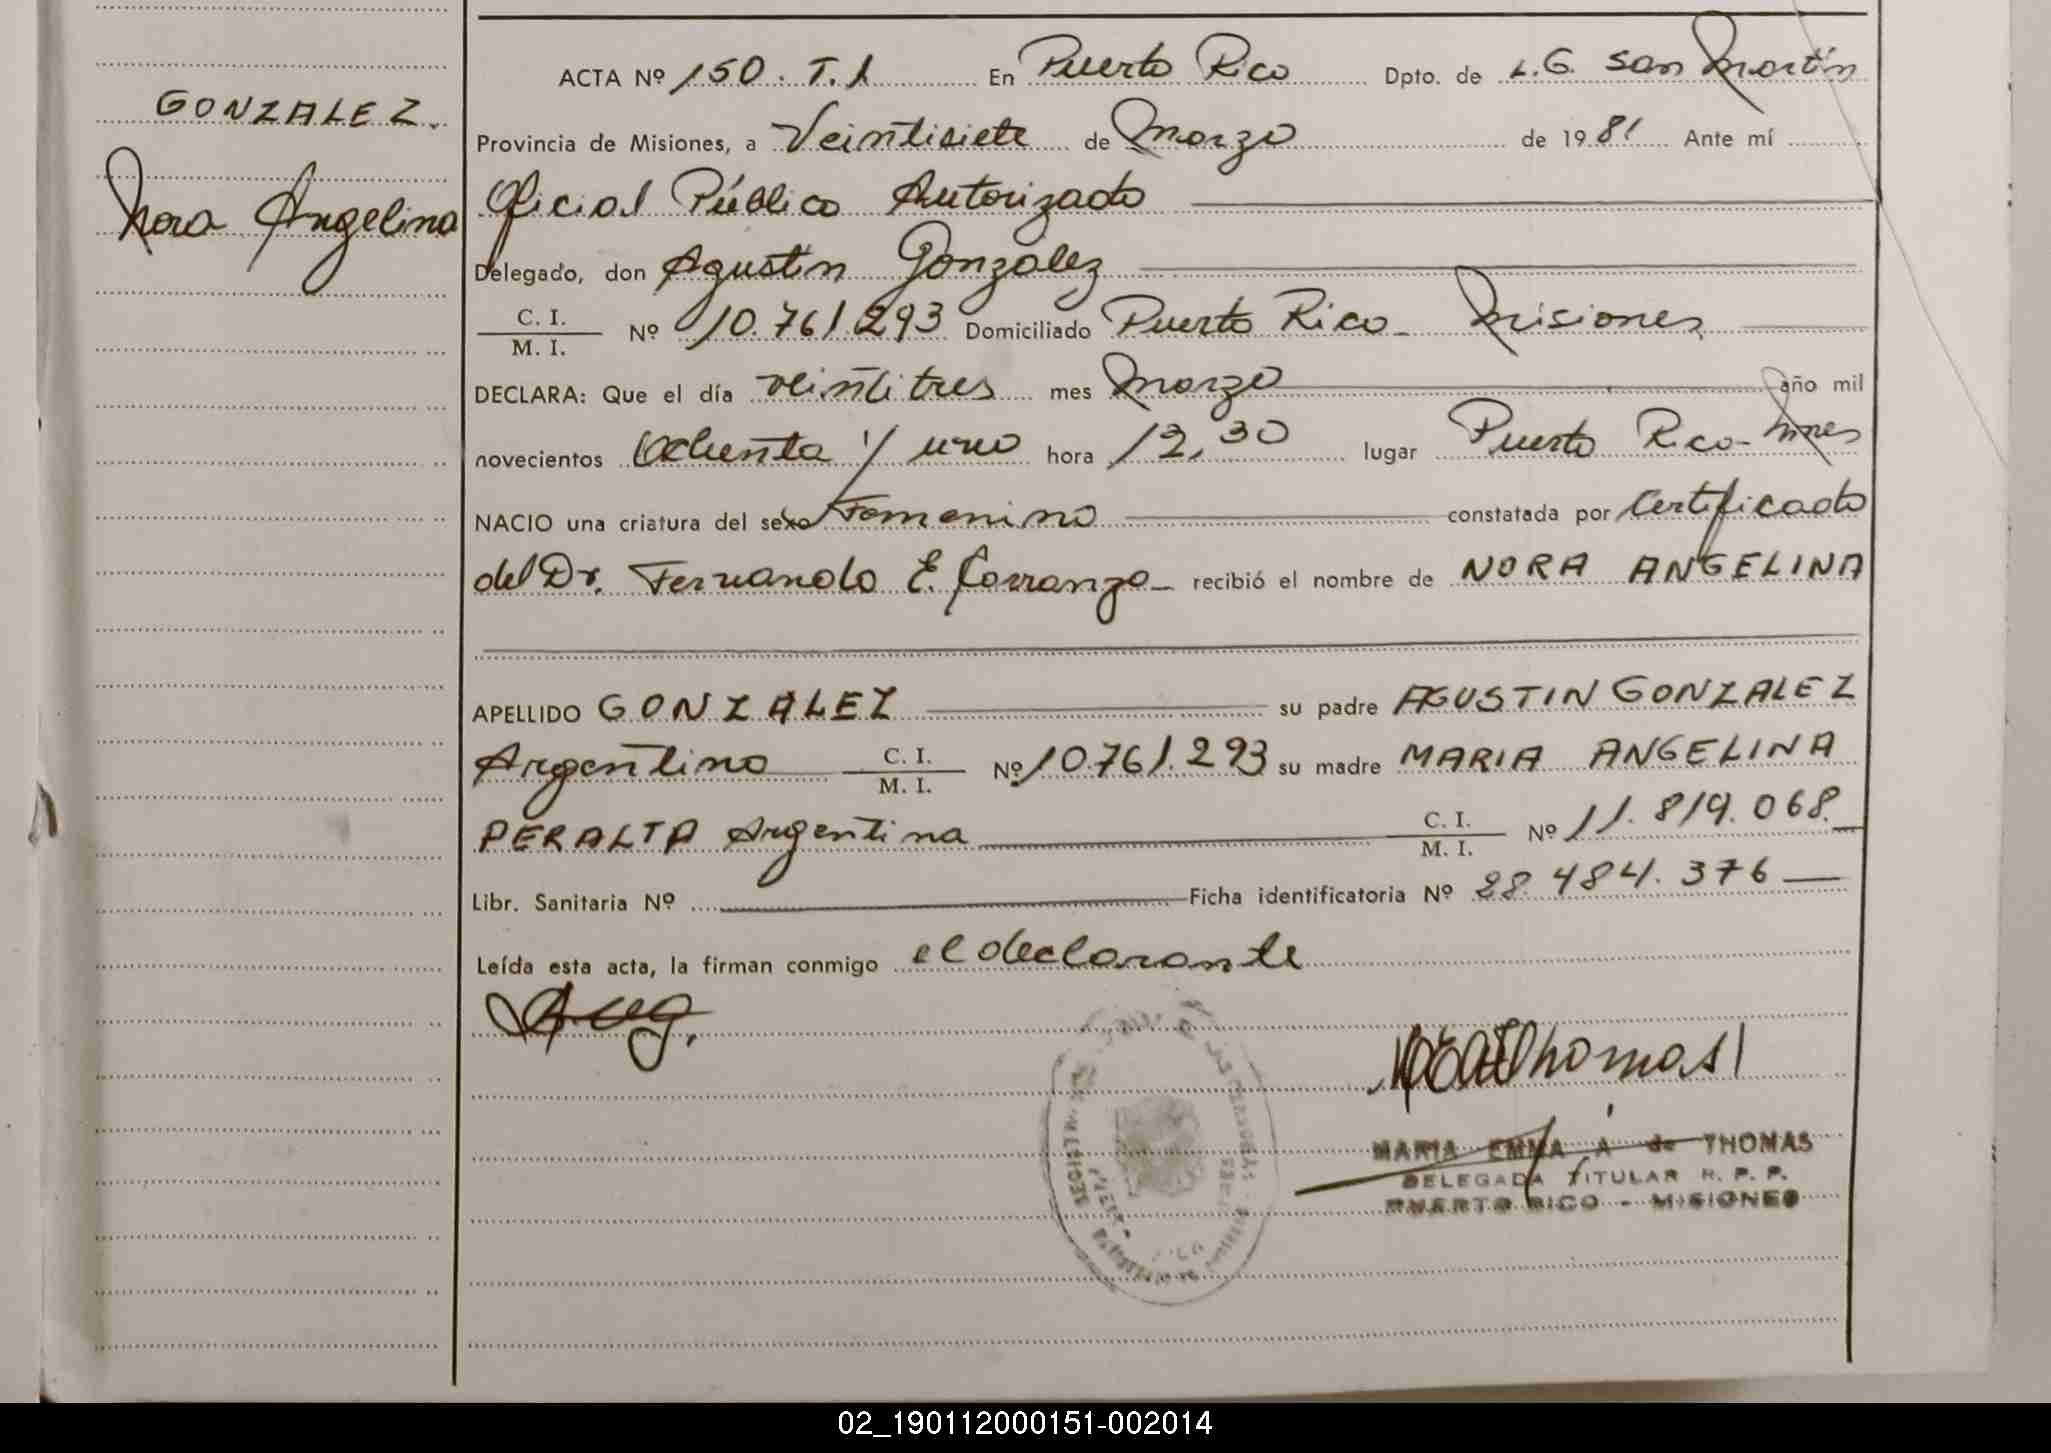 GONZALEZ.
Nora Angelina
ACTA Nº 150. T. 1 En Puerto Rico Dpto. de L.G. San Martín
Provincia de Misiones, a Veintisiete de Marzo de 1981 Ante mí
Oficial Público Autorizado
Delegado, don Agustín Gonzalez
C. I. / M. I. Nº 10.761.293 Domiciliado Puerto Rico - Misiones
DECLARA: Que el día veintitres mes Marzo año mil
novecientos Ochenta y uno hora 12,30 lugar Puerto Rico - Mnes
NACIO una criatura del sexo Femenino constatada por Certificado
del Dr. Fernando E. Carranza - recibió el nombre de NORA ANGELINA
APELLIDO GONZALEZ su padre AGUSTIN GONZALEZ
Argentino C. I. / M. I. Nº 10.761.293 su madre MARIA ANGELINA
PERALTA Argentina C. I. / M. I. Nº 11.819.068.
Libr. Sanitaria Nº Ficha identificatoria Nº 28.484.376
Leída esta acta, la firman conmigo el declarante
MEA de Thomas
MARIA EMMA A de THOMAS
DELEGADA TITULAR R. P. P.
PUERTO RICO - MISIONES
02_190112000151-002014